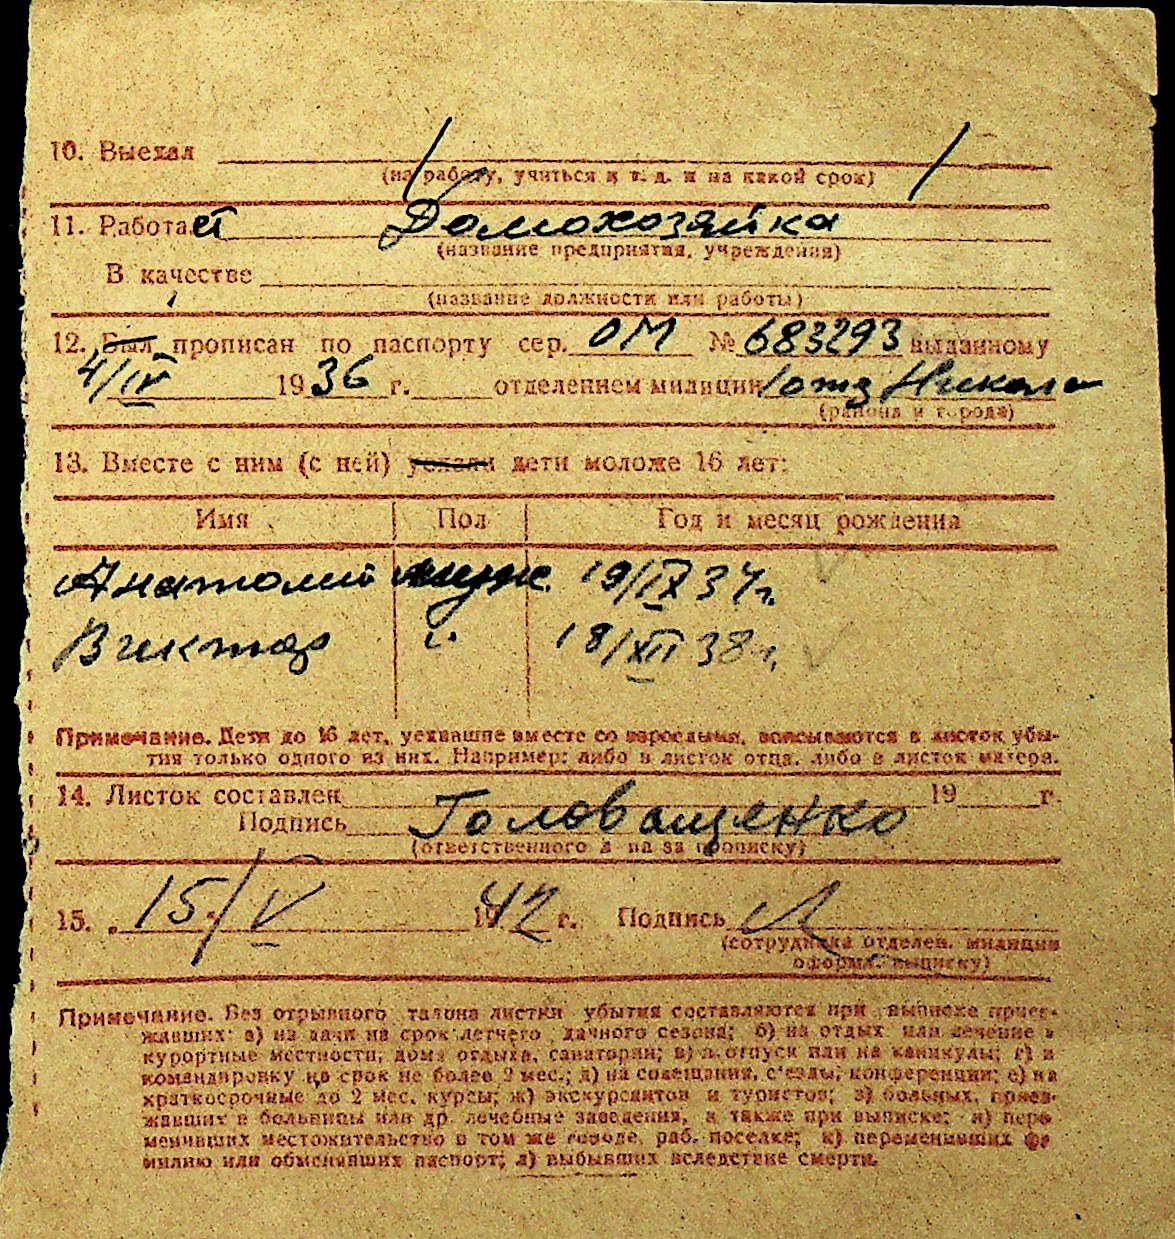 10. Выехал
(на работу, учиться и т. д. и на какой срок)
11. Работает Домохозяйка
(название предприятия, учреждения)
В качестве
(название должности или работы)
12. Был прописан по паспорту сер. ОМ № 683293 выданному
4/IV 1936 г. отделением милиции 1 отд Никола
(района и города)
13. Вместе с ним (с ней) уехали дети моложе 16 лет:
Имя Пол Год и месяц рождения
Анатолий муж 19/IX 34 г.
Виктор 18/XII 38 г.
Примечание. Дети до 16 лет, уехавшие вместе со взрослыми, вписываются в листок убы-
тия только одного из них. Например: либо в листок отца, либо в листок матери.
14. Листок составлен 19 г.
Подпись Головащенко
(ответственного л на за прописку)
15. 15/V 1942 г. Подпись
(сотрудника отделен. милиции
оформ. выписку)
Примечание. Без отрывного талона листки убытия составляются при выписке приез-
жавших: а) на дачи на срок летнего дачного сезона; б) на отдых или лечение в
курортные местности, дома отдыха, санатории; в) в отпуск или на каникулы; г) в
командировку на срок не более 2 мес.; д) на совещания, с'езды, конференции; е) на
краткосрочные до 2 мес. курсы; ж) экскурсантов и туристов; з) больных, приез-
жавших в больницы или др. лечебные заведения, а также при выписке; и) пере
менивших местожительство в том же городе, раб. поселке; к) переменивших фа
милию или обменявших паспорт; л) выбывших вследствие смерти.